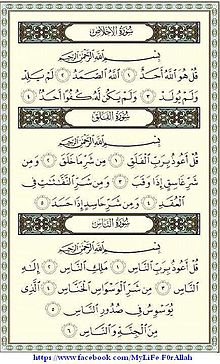 سُورَةُ الإِخْلَاصِ
بِسْمِ اللَّهِ الرَّحْمَٰنِ الرَّحِيمِ
قُلْ هُوَ اللَّهُ أَحَدٌ ١ اللَّهُ الصَّمَدُ ٢ لَمْ يَلِدْ
وَلَمْ يُولَدْ ٣ وَلَمْ يَكُن لَّهُ كُفُوًا أَحَدٌ ٤
سُورَةُ الْفَلَقِ
بِسْمِ اللَّهِ الرَّحْمَٰنِ الرَّحِيمِ
قُلْ أَعُوذُ بِرَبِّ الْفَلَقِ ١ مِن شَرِّ مَا خَلَقَ ٢ وَمِن
شَرِّ غَاسِقٍ إِذَا وَقَبَ ٣ وَمِن شَرِّ النَّفَّٰثَٰتِ فِي
الْعُقَدِ ٤ وَمِن شَرِّ حَاسِدٍ إِذَا حَسَدَ ٥
سُورَةُ النَّاسِ
بِسْمِ اللَّهِ الرَّحْمَٰنِ الرَّحِيمِ
قُلْ أَعُوذُ بِرَبِّ النَّاسِ ١ مَلِكِ النَّاسِ ٢ إِلَٰهِ
النَّاسِ ٣ مِن شَرِّ الْوَسْوَاسِ الْخَنَّاسِ ٤ الَّذِي
يُوَسْوِسُ فِي صُدُورِ النَّاسِ ٥
مِنَ الْجِنَّةِ وَالنَّاسِ ٦
https://www.facebook.com/MyLiFe F0rAllah